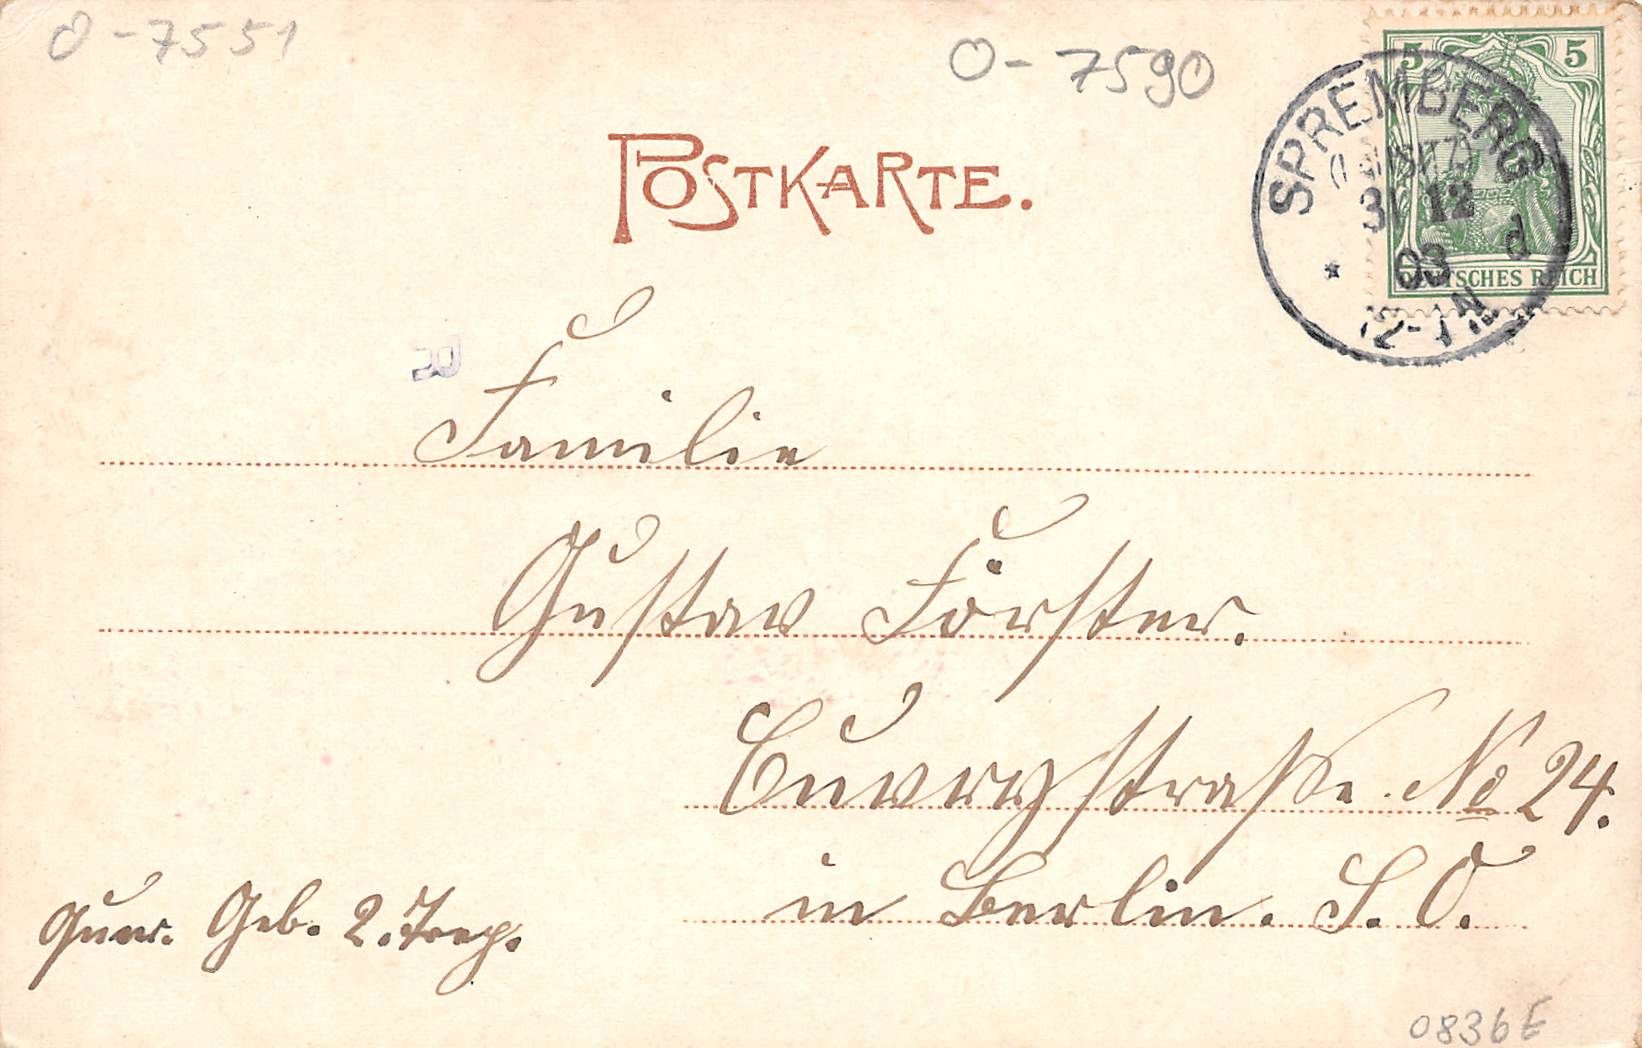 0-7551
0-7590
POSTKARTE.
5 5
DEUTSCHES REICH
SPREMBERG
(LAUSITZ)
31 12
03 d
12-1 N
R
Familie
Gustav Förster.
Cuvrystraße No 24.
in Berlin. S. O.
Quer. Geb. 2. Trep.
0836E